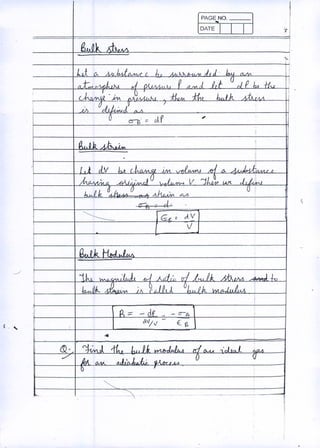 PAGE NO.
DATE
Bulk stress
Let a substance be surrounded by an
atmosphere of pressure P and let dP be the
change in pressure, then the bulk stress
is defined as
σB = dP
Bulk strain
Let dV be change in volume of a substance
having original volume V. Then we define
bulk strain as
ЄB = dV/V
Bulk Modulus
The magnitude of ratio of bulk stress to
bulk strain is called bulk modulus
B = -dP/dV/V = -σB/ЄB
Q:- Find the bulk modulus of an ideal gas
for an adiabatic process.